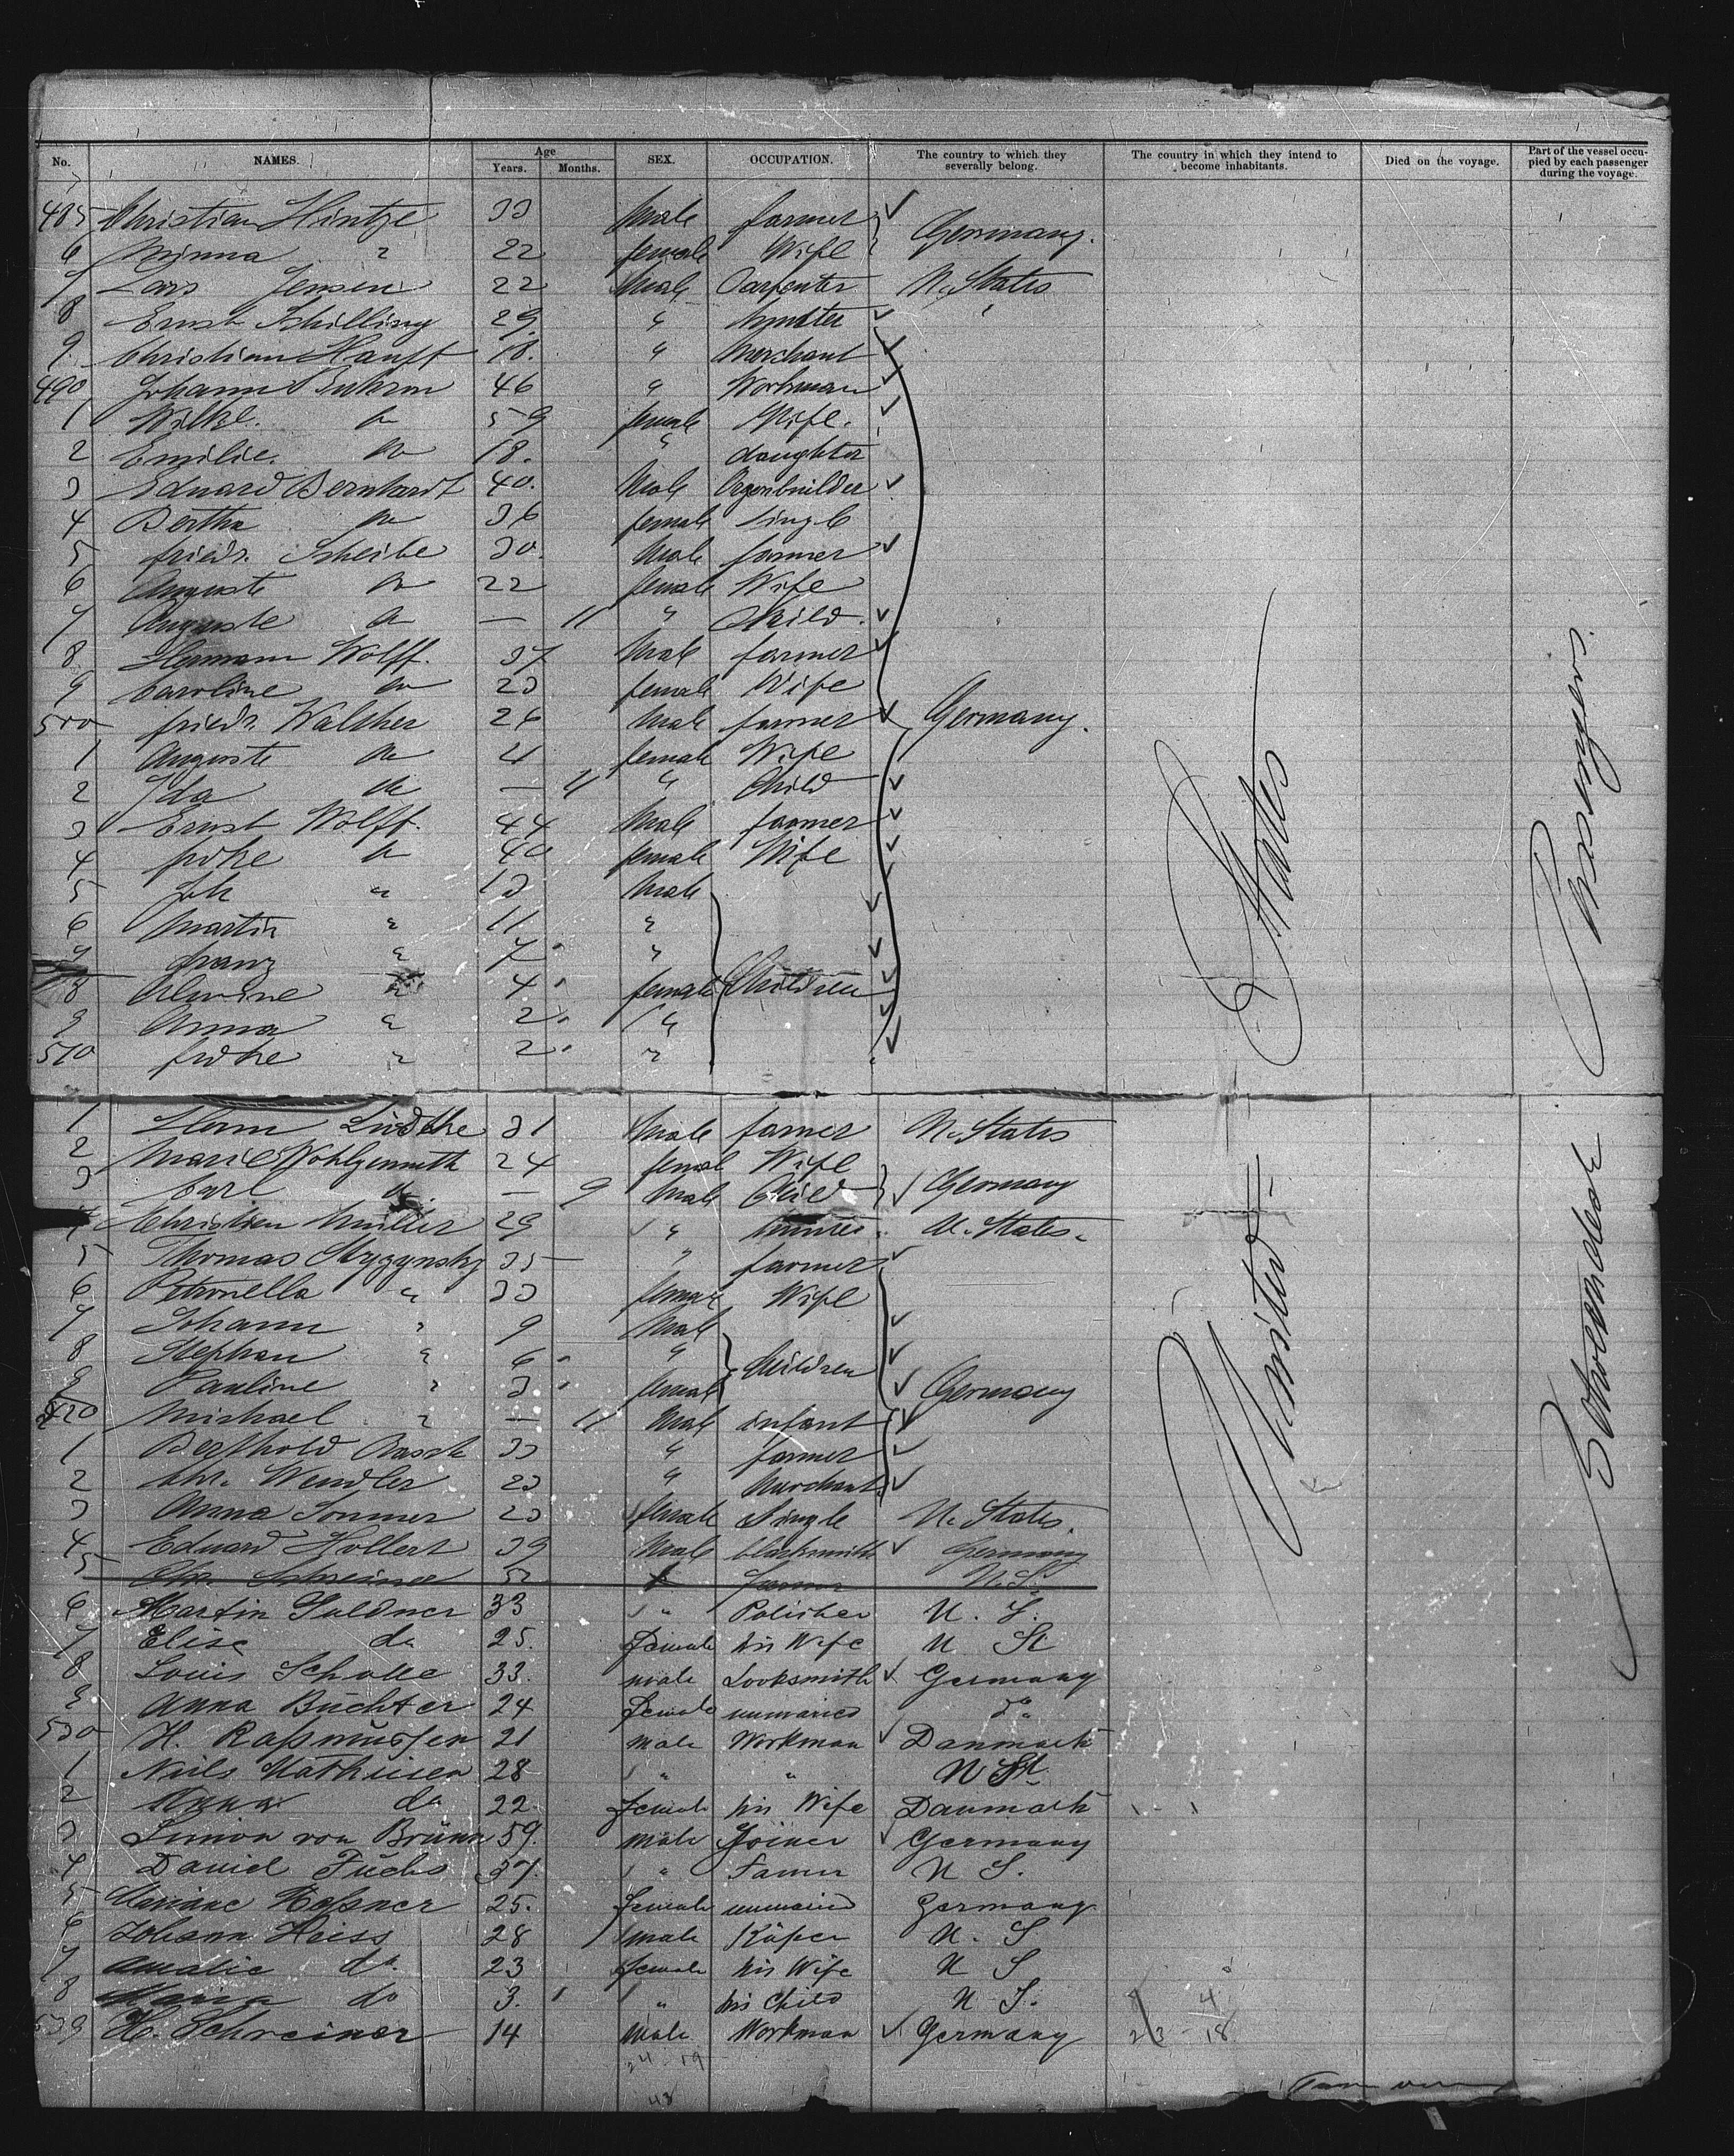 No. NAMES. Age Years. Months. SEX. OCCUPATION. The country to which they severally belong. The country in which they intend to become inhabitants. Died on the voyage. Part of the vessel occupied by each passenger during the voyage.
485 Christian Hintze 33 Male farmer Germany.
6 Minna " 22 female Wife
7 Lars Jensen 22 Male Carpenter U. States
8 Ernst Schilling 29. "
9. Christian Hauff 18. " Merchant
490 Johann 46 " Workman
1 Wilhe. do 59 female Wife.
2 Emilie. do 18. " daughter
3 Eduard Bernhardt 40. Male Organbuilder
4 Bertha do 36 female Single
5 friedr. Scheibe 30. Male farmer
6 Auguste do 22 female Wife
7 Auguste do — 11 " Child.
8 Hermann Wolff. 37 Male farmer
9 Caroline do 23 female Wife
500 friedr. Walther 26 Male farmer Germany.
1 Auguste do 21 female Wife
2 Ida do — 11 " Child
3 Ernst Wolff. 44 Male farmer
4 fridke do 40 female Wife
5 Joh " 13 Male
6 Martin " 11. "
7 franz " 7 "
8 Alwine " 4 female Children
9 Anna " 2 "
510 fridke " 2 "
1 Herm Lüdtke 31 Male farmer U. States
2 Marie Wohlgemuth 24 female Wife
3 Carl do. — 9 Male Child Germany
4 Christian Müller 29 " U. States.
5 Thomas 35 " farmer
6 Petronella " 33 female Wife
7 Johann " 9 Male
8 Stephan " 6 " Children
9 Pauline " 3 female Germany
520 Michael " — 11 Male infant
1 Berthold Raasch 33 " farmer
2 Chr. Wendler 23 " Merchant
3 Anna Sommer 23 female Single U. States.
4 Eduard Hollert 39 Male blacksmith Germany
5 Chr. Schreiner 52 farmer U. S.
6 Martin Guldner 33 " Polisher U. S.
7 Elise do 25. Female his Wife U St
8 Louis Scholle 33. male Locksmith Germany
9 Anna Büchter 24 Female unmaried do
530 H. Raßmussen 21 male Workman Danmark
1 Niels Mathiesen 28 " " U St.
2 Anna do 22. Female his Wife Danmark
3 Simon von Brünn 59. male Joiner Germany
4 David Fuchs 37. " Famer U S.
5 Mariane Haßner 25. female unmaried Germany
6 Johann Heiss 28 male Küfer U. S
7 Amalie do. 23 Female his Wife U S
8 Maria do 3. " his Child U S.
539 H. Schreiner 14 male Workman Germany
United States
Betweendeck Passengers.
4
23 - 18
24 - 19
43